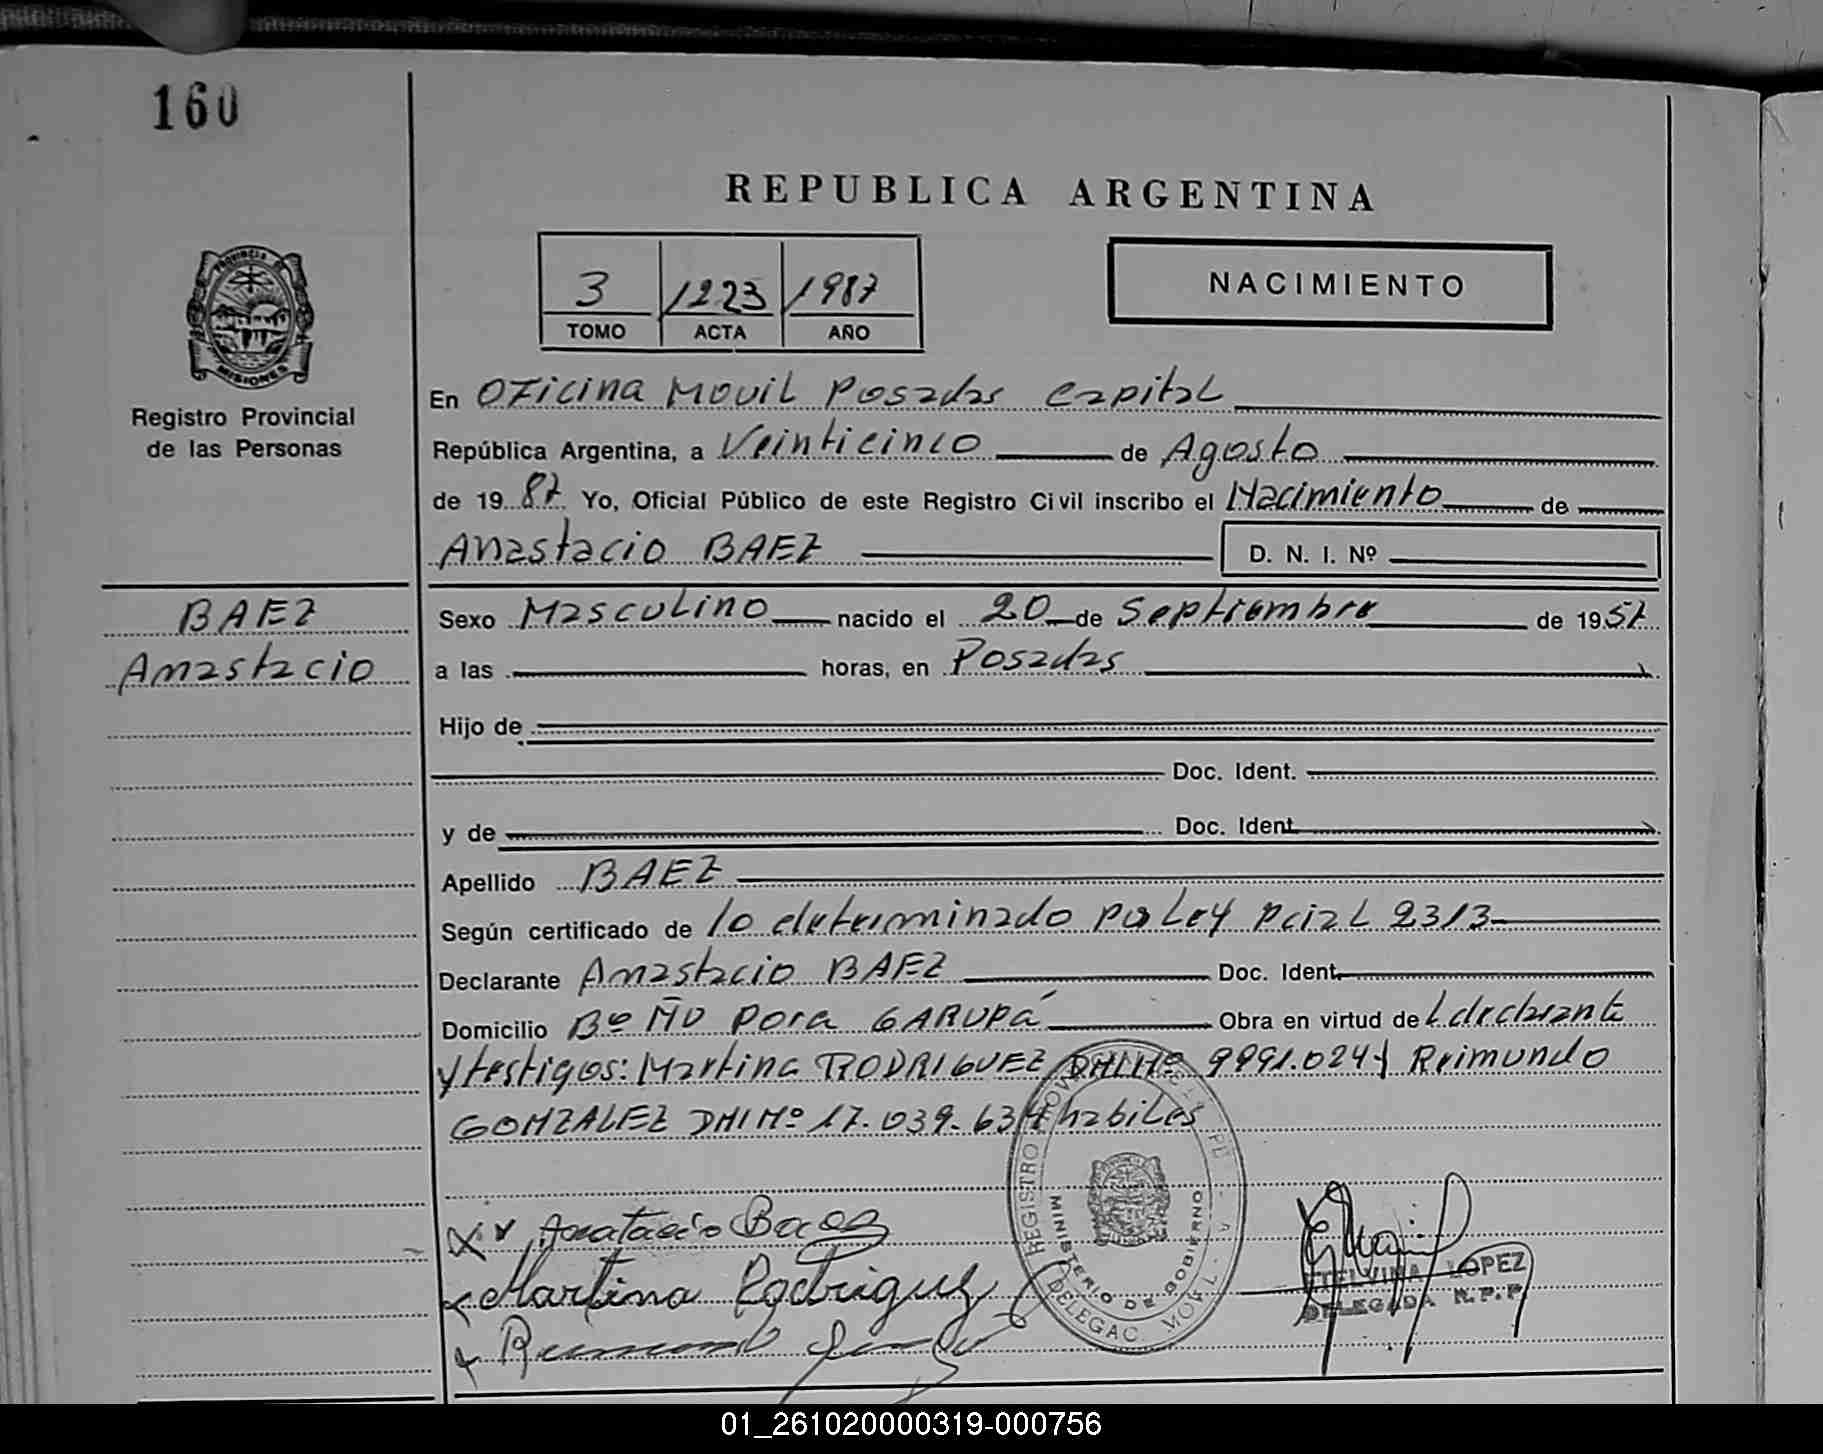 160
REPUBLICA ARGENTINA
3 1223 1987
TOMO ACTA AÑO
NACIMIENTO
PROVINCIA DE
MISIONES
Registro Provincial
de las Personas
En Oficina Movil Posadas Capital
República Argentina, a Veinticinco de Agosto
de 19 87 Yo, Oficial Público de este Registro Civil inscribo el Nacimiento de
Anastacio BAEZ D. N. I. Nº
BAEZ
Anastacio
Sexo Masculino nacido el 20 de Septiembre de 19 57
a las horas, en Posadas
Hijo de
Doc. Ident.
y de Doc. Ident
Apellido BAEZ
Según certificado de lo determinado por Ley Pcial 2313
Declarante Anastacio BAEZ Doc. Ident
Domicilio Bº ÑU Pora GARUPÁ Obra en virtud de L declarante
y testigos: Martina RODRIGUEZ DNI Nº 9991.024 y Reimundo
GONZALEZ DNI Nº 17.039.634 habiles
Anatacio Baez
Martina Rodriguez
REGISTRO
MINISTERIO DE GOBIERNO
DELEGAC. MOVIL
ETELVINA LOPEZ
DELEGADA R.P.P.
01_261020000319-000756